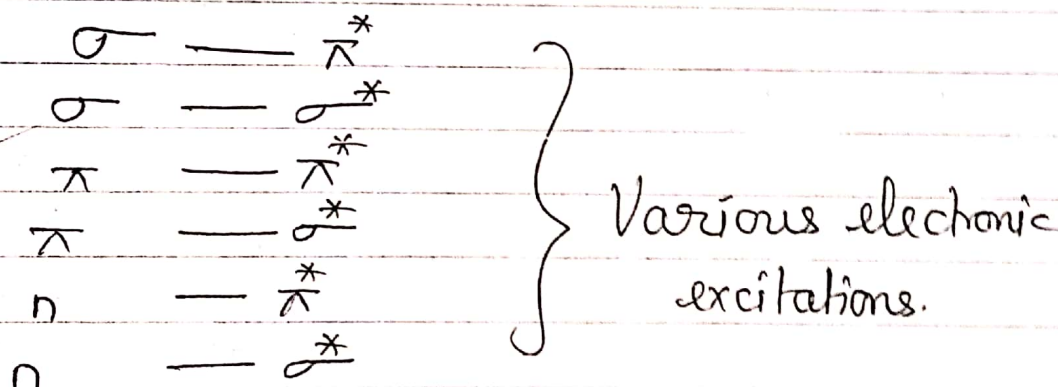 σ — π*
σ — σ*
π — π*
π — σ*
n — π*
n — σ*
Various electronic
excitations.